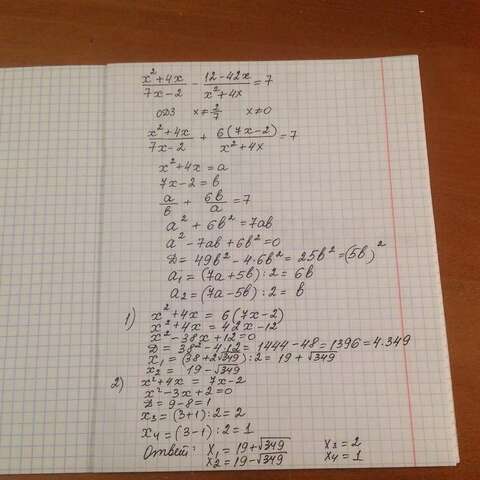 (x²+4x)/(7x-2) - (12-42x)/(x²+4x) = 7
ОДЗ x≠2/7 x≠0
(x²+4x)/(7x-2) + 6(7x-2)/(x²+4x) = 7
x²+4x = a
7x-2 = b
a/b + 6b/a = 7
a² + 6b² = 7ab
a² - 7ab + 6b² = 0
D = 49b² - 4·6b² = 25b² = (5b)²
a₁ = (7a+5b):2 = 6b
a₂ = (7a-5b):2 = b
1) x²+4x = 6(7x-2)
x²+4x = 42x-12
x²-38x+12=0
D = 38²-4·12 = 1444-48 = 1396 = 4·349
x₁ = (38+2√349):2 = 19+√349
x₂ = 19-√349
2) x²+4x = 7x-2
x²-3x+2=0
D = 9-8=1
x₃ = (3+1):2 = 2
x₄ = (3-1):2 = 1
Ответ: x₁ = 19+√349 x₃ = 2
x₂ = 19-√349 x₄ = 1